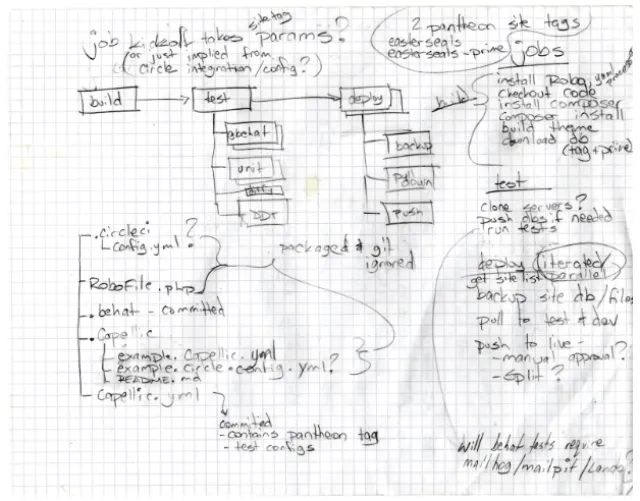 job kickoff takes site tag params?
(or just implied from
circle integration/config?)
2 pantheon site tags
easterseals
easterseals-prime
build
test
deploy
behat
unit
DDT
backup
pull down
push
jobs
build
install Robo, yaml
checkout code
install composer
composer install
build theme
download db
(tag + prime)
test
clone servers?
push dbs if needed
run tests
deploy (iterated/
parallel
get site list
backup site db/files
pull to test & dev
push to live -
- manual approval?
- split?
will behat tests require
mailhog/mailpit/Lando?
.circleci
config.yml
?
packaged & git
ignored
RoboFile.php
.behat - committed
.Capellic
example.Capellic.yml
example.circle.config.yml?
README.md
Capellic.yml
committed
- contains pantheon tag
- test configs